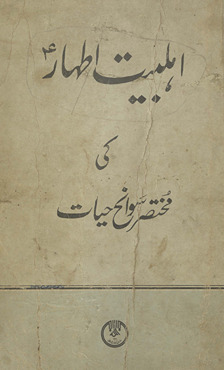 اہلبیت اطہارؑ
کی
مختصر سوانح حیات